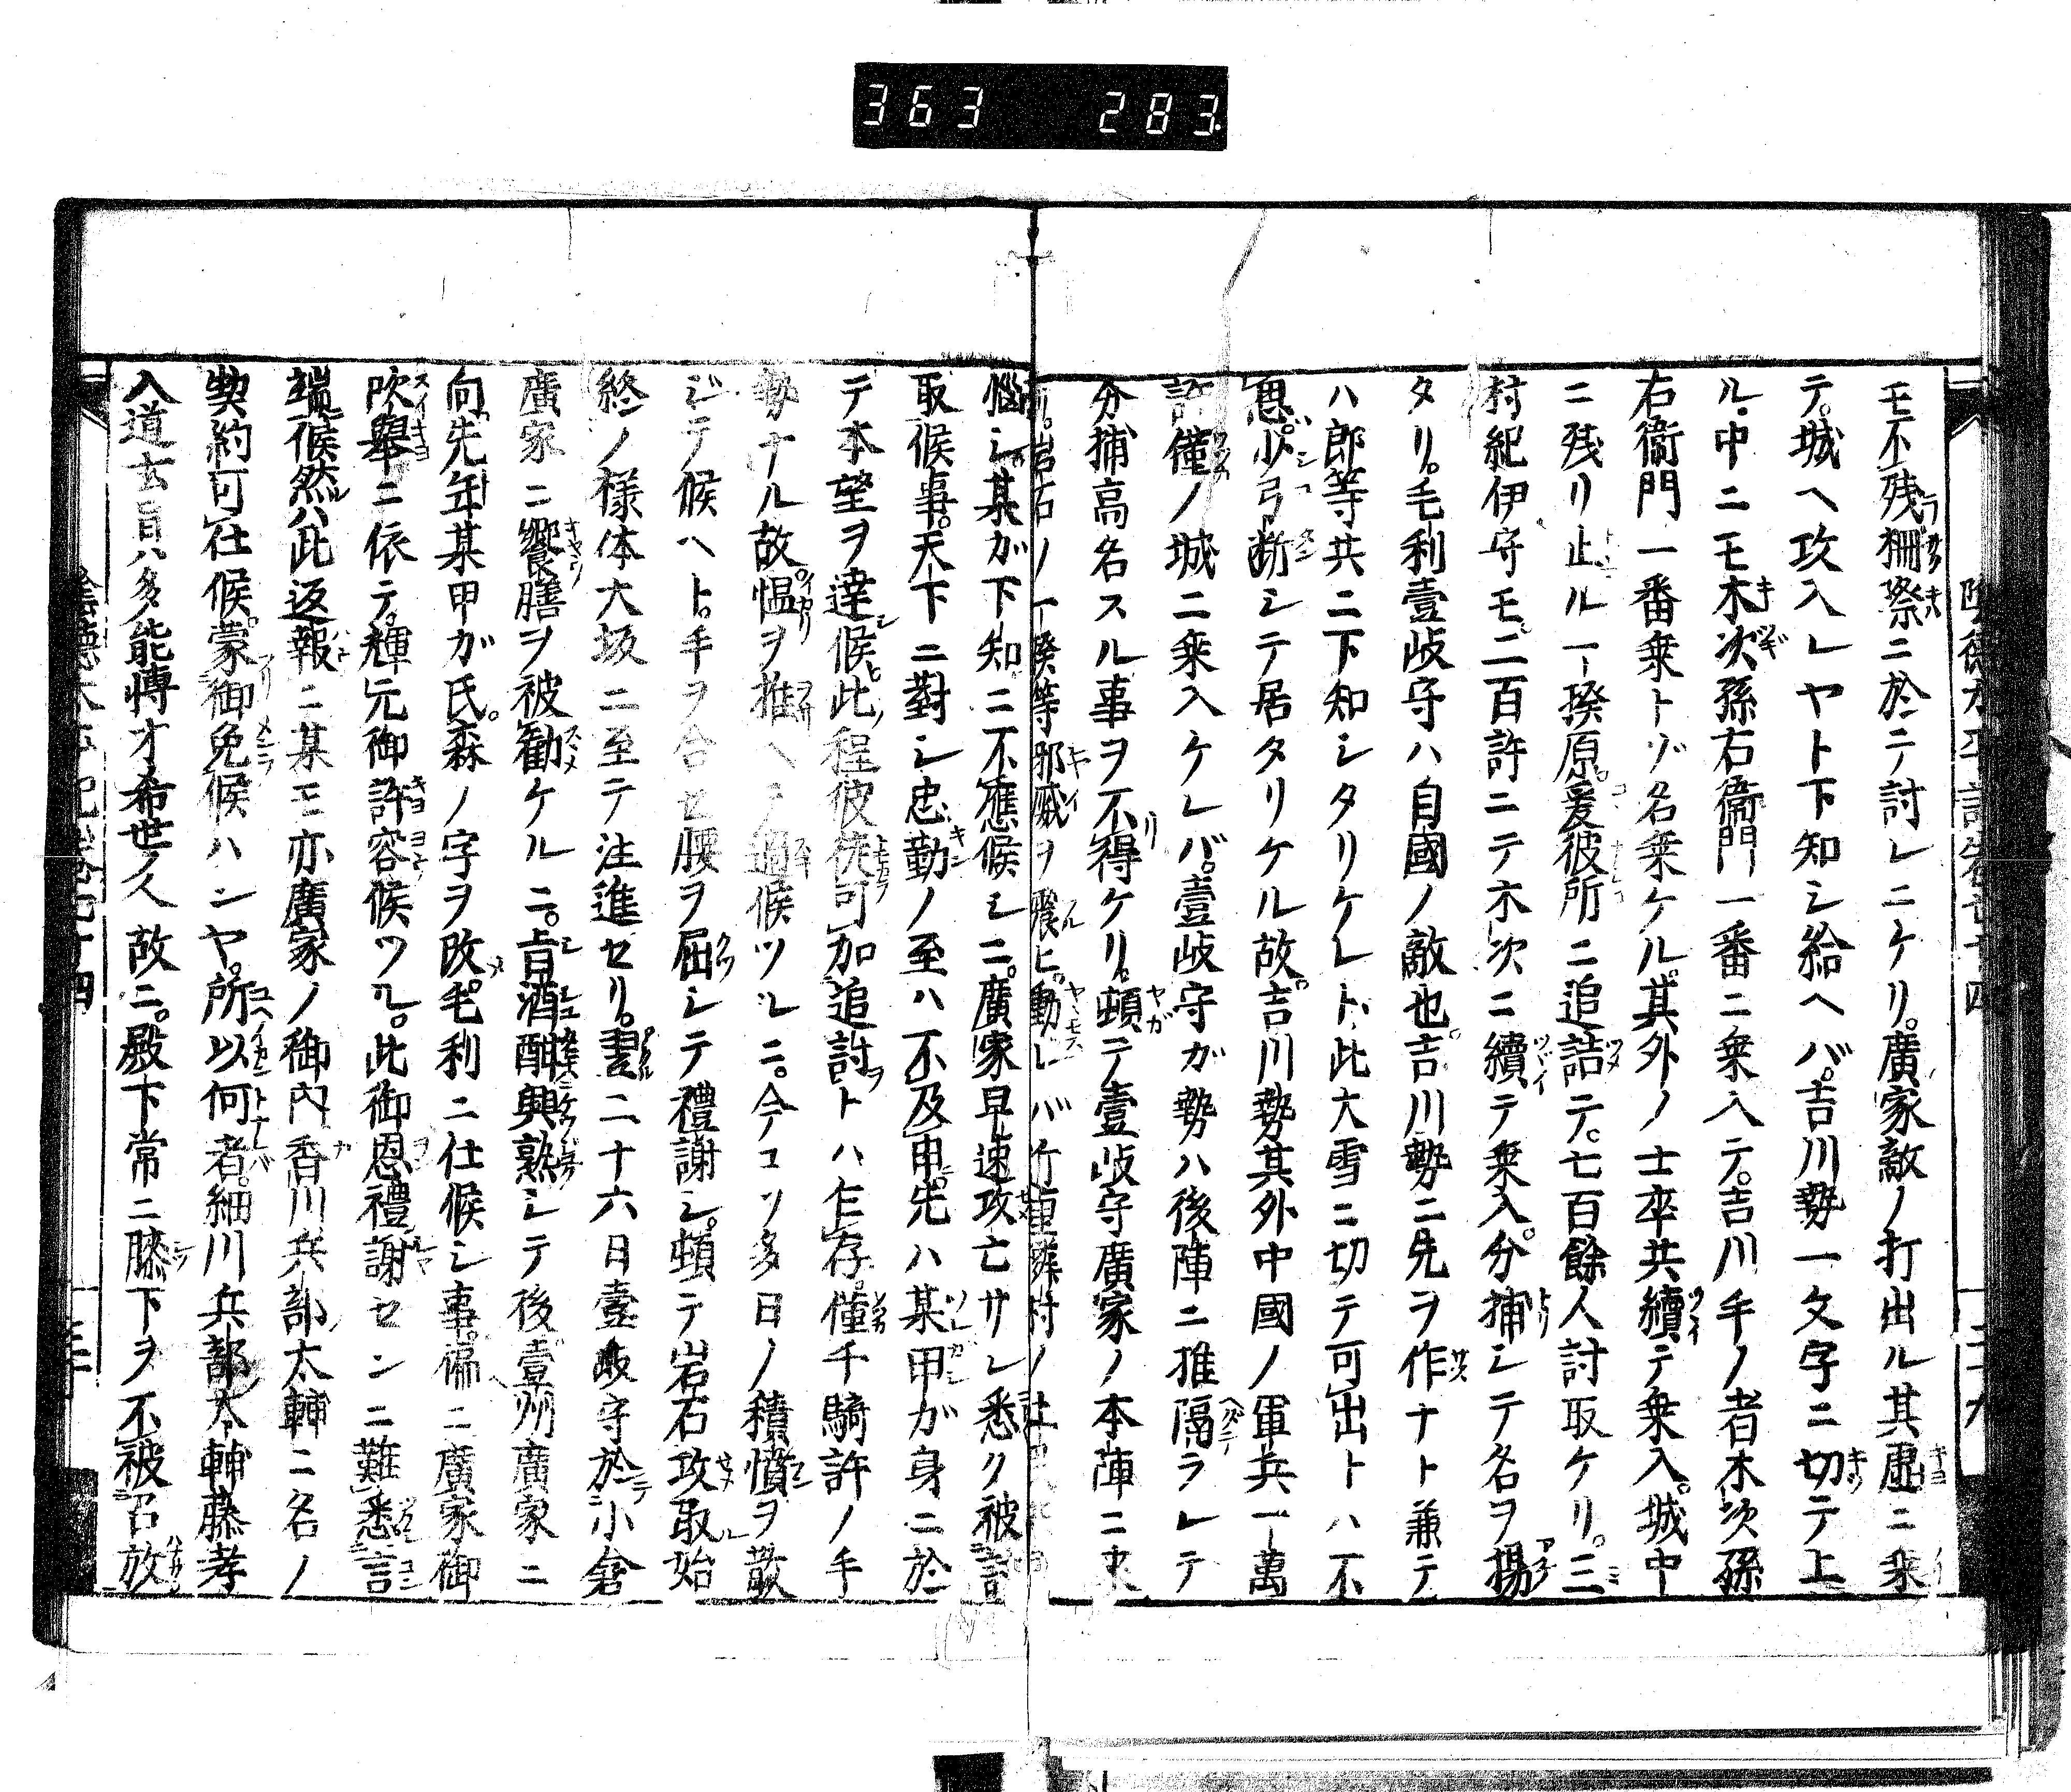 363 283
陰徳太平記巻七十四
モ不残柵際ニ於テ討レニケリ。廣家敵ノ打出ル其虚ニ乗
テ。城ヘ攻入レヤト下知シ給ヘバ。吉川勢一文字ニ切テ上
ル。中ニモ木次孫右衛門一番ニ乗入テ。吉川手ノ者木次孫
右衛門一番乗トゾ名乗ケル。其外ノ士卒共續テ乗入。城中
ニ残リ止ル一揆原。爰彼所ニ追詰テ。七百餘人討取ケリ。三
村紀伊守モ。二百許ニテ木次ニ續テ乗入。分捕シテ名ヲ揚
タリ。毛利壹岐守ハ自國ノ敵也。吉川勢ニ先ヲ作ナト兼テ
ハ郎等共ニ下知シタリケレト。此大雪ニ切テ可出トハ不
思。少弓断シテ居タリケル故。吉川勢其外中國ノ軍兵一萬
許僅ノ城ニ乗入ケレバ。壹岐守ガ勢ハ後陣ニ推隔ラレテ
分捕高名スル事ヲ不得ケリ。頓テ壹岐守廣家ノ本陣ニ来
。岩石ノ一揆等邪威ヲ震ヒ。動レバ竹鄰村ノ
惱シ某ガ下知ニ不應候シニ。廣家早速攻亡サレ悉ク被討
取候事。天下ニ對シ忠勤ノ至ハ不及申。先ハ某甲ガ身ニ於
テ本望ヲ達候此程彼徒可加追討トハ乍存。僅千騎許ノ手
勢ナル故。慍ヲ推ヘテ過候ツルニ。今コソ多日ノ積憤ヲ散
ジテ候ヘト。手ヲ合セ腰ヲ屈シテ禮謝シ。頓テ岩石攻取始
終ノ様体大坂ニ至テ注進セリ。翌二十六日壹岐守於小倉
廣家ニ饗膳ヲ被勧ケルニ。旨酒酣興熟シテ後壹州廣家ニ
向先年某甲ガ氏。森ノ字ヲ改。毛利ニ仕候シ事。偏ニ廣家御
吹擧ニ依テ。輝元御許容候ツル。此御恩禮謝センニ難悉言
端候然ハ此返報ニ某モ亦廣家ノ御内香川兵部太輔ニ名ノ
契約可仕候。蒙御免候ハンヤ。所以何者。細川兵部太輔藤孝
入道玄旨ハ多能博才希世ノ人故ニ。殿下常ニ膝下ヲ不被召放
陰徳太平記巻七十四